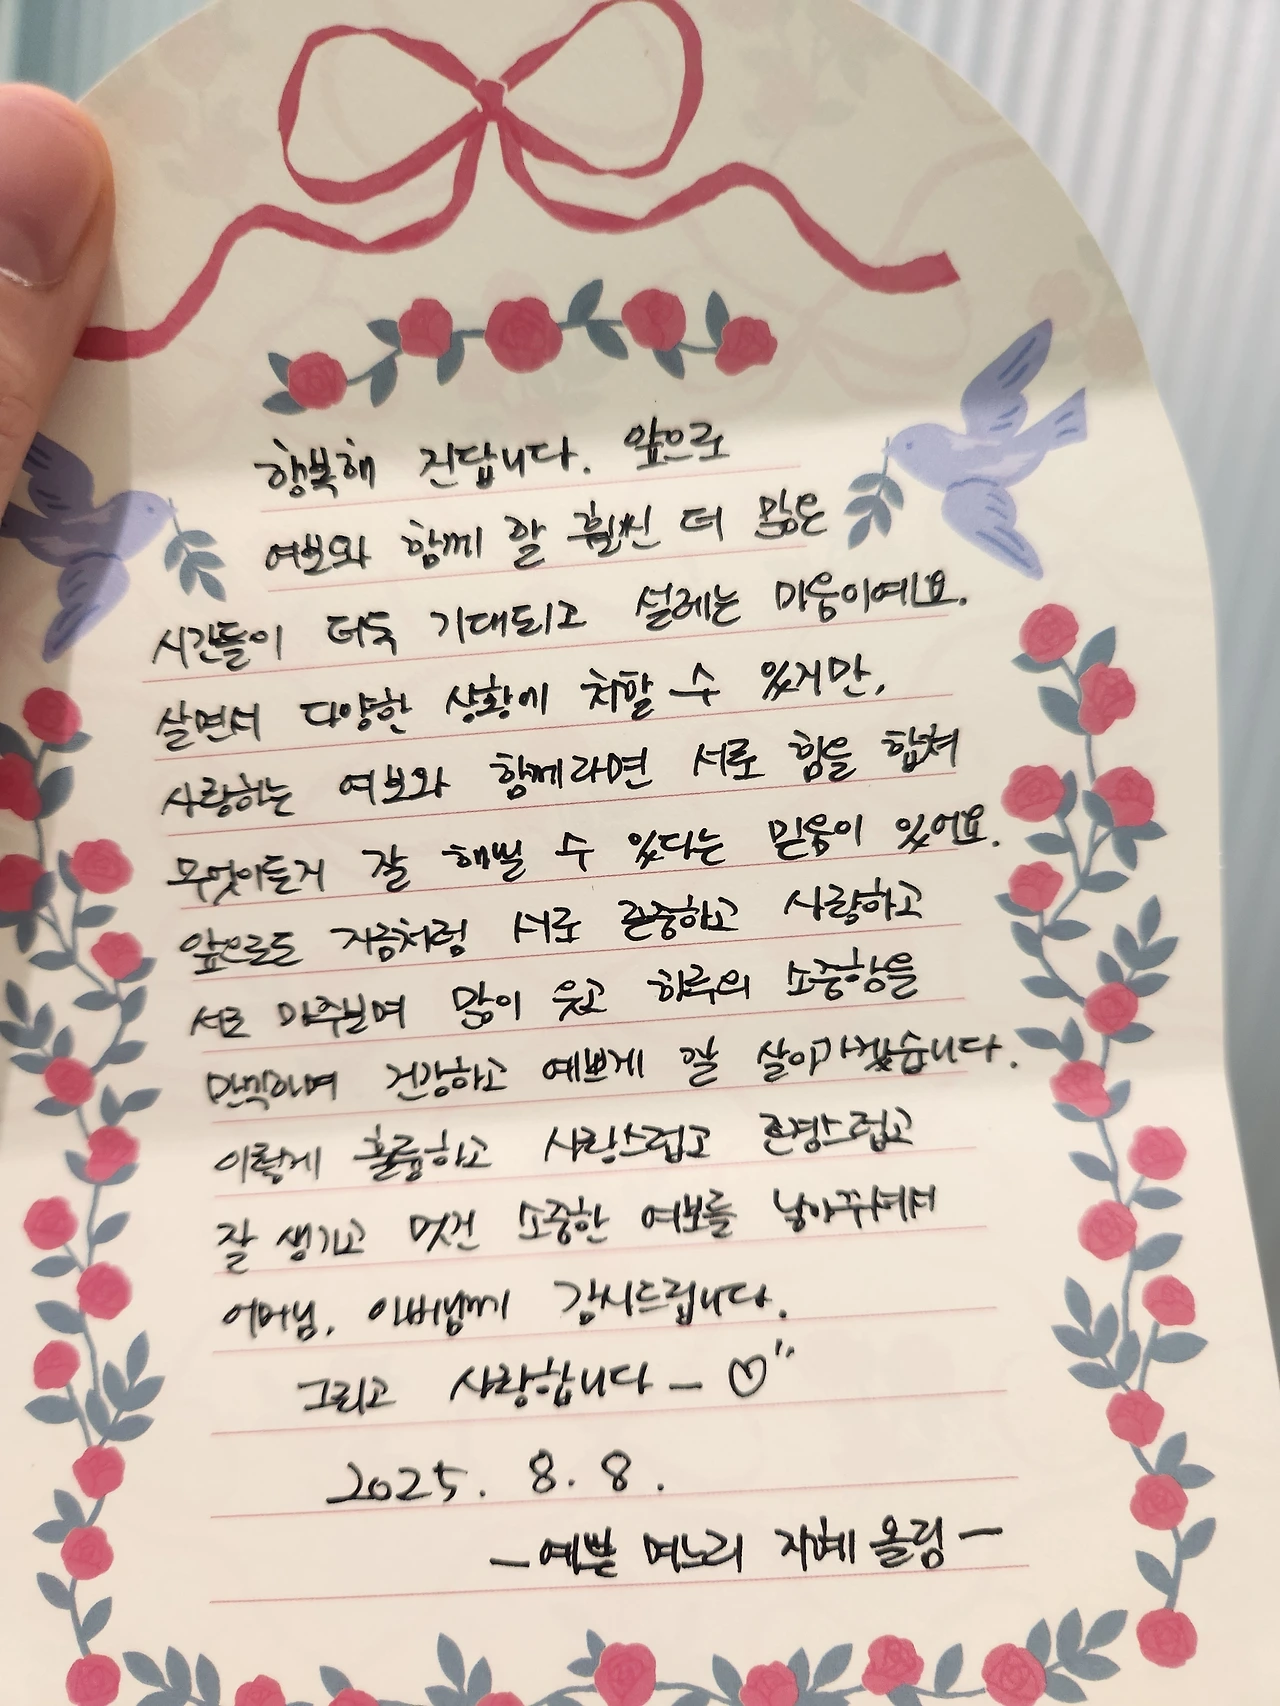 행복해 진답니다. 앞으로
여보와 함께 할 훨씬 더 많은
시간들이 더욱 기대되고 설레는 마음이에요.
살면서 다양한 상황에 처할 수 있지만,
사랑하는 여보와 함께라면 서로 힘을 합쳐
무엇이든지 잘 해낼 수 있다는 믿음이 있어요.
앞으로도 지금처럼 서로 존중하고 사랑하고
서로 마주보며 많이 웃고 하루의 소중함을
만끽하며 건강하고 예쁘게 잘 살아가겠습니다.
이렇게 훌륭하고 사랑스럽고 존경스럽고
잘 생기고 멋진 소중한 여보를 낳아주셔서
어머님, 아버님께 감사드립니다.
그리고 사랑합니다 -
2025. 8. 8.
- 예쁜 며느리 지혜 올림 -